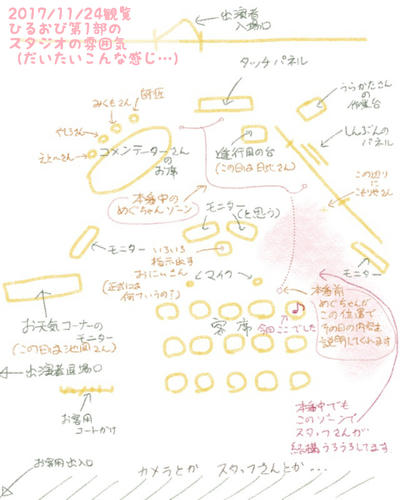 2017/11/24観覧
ひるおび第1部の
スタジオの雰囲気
(だいたいこんな感じ…)
出演者
入場口
タッチパネル
うらかたさんの
作業台
みくもさん
師匠
やしろさん
えとうさん
コメンテーターさん
のお席
進行用の台
(この日は恵さん)
しんぶんの
パネル
この辺りに
こもりやさん
本番中の
めぐちゃんゾーン
モニター
(と思う)
モニター
いろいろ
指示出す
おにいさん
(正式には
何ていうの?)
マイク
モニター
お天気コーナーの
モニター
(この日は池岡さん)
客席
今回ここでした
本番前
めぐちゃんが
この位置で
今日の内容を
説明してくれます
出演者退場口
お客用
コートかけ
本番中でも
このゾーンで
スタッフさんが
結構うろうろしてます
お客用出入口
カメラとか スタッフさんとか…